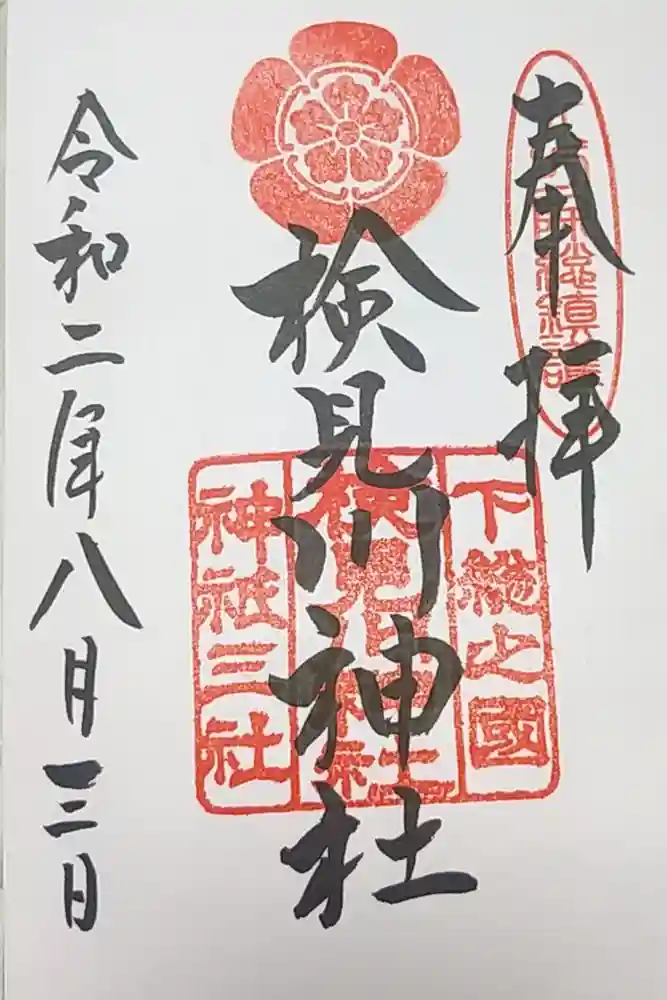 奉拝
下總之國
検見川神社
神祇三社
検見川神社
令和二年八月三日